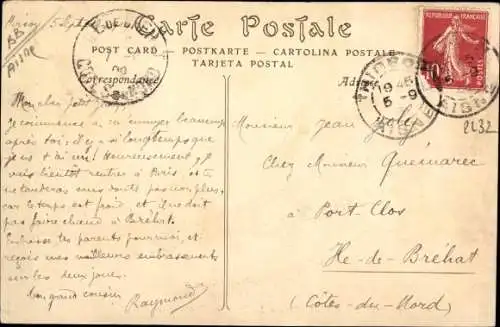 Carte Postale
POST CARD — POSTKARTE — CARTOLINA POSTALE
TARJETA POSTAL
Correspondance
5 Sept
BB
AISNE
RÉPUBLIQUE FRANÇAISE
10
POSTES
19 45
5 -9
AISNE
8432
Mon
Je commence à m'ennuyer beaucoup
après toi; il y a si longtemps que
je ne t'ai vu! Heureusement, je
vais bientôt rentrer à Paris, et tu
ne tarderas sans doute pas non plus,
car le temps est froid et il ne doit
pas faire chaud à Bréhat.
Embrasse tes parents pour moi, et
reçois mes meilleurs embrassements
sur les deux joues.
Ton grand cousin
Raymond
Monsieur Jean
Chez Monsieur Quémarec
à Port Clos
Ile-de-Bréhat
(Côtes-du-Nord)